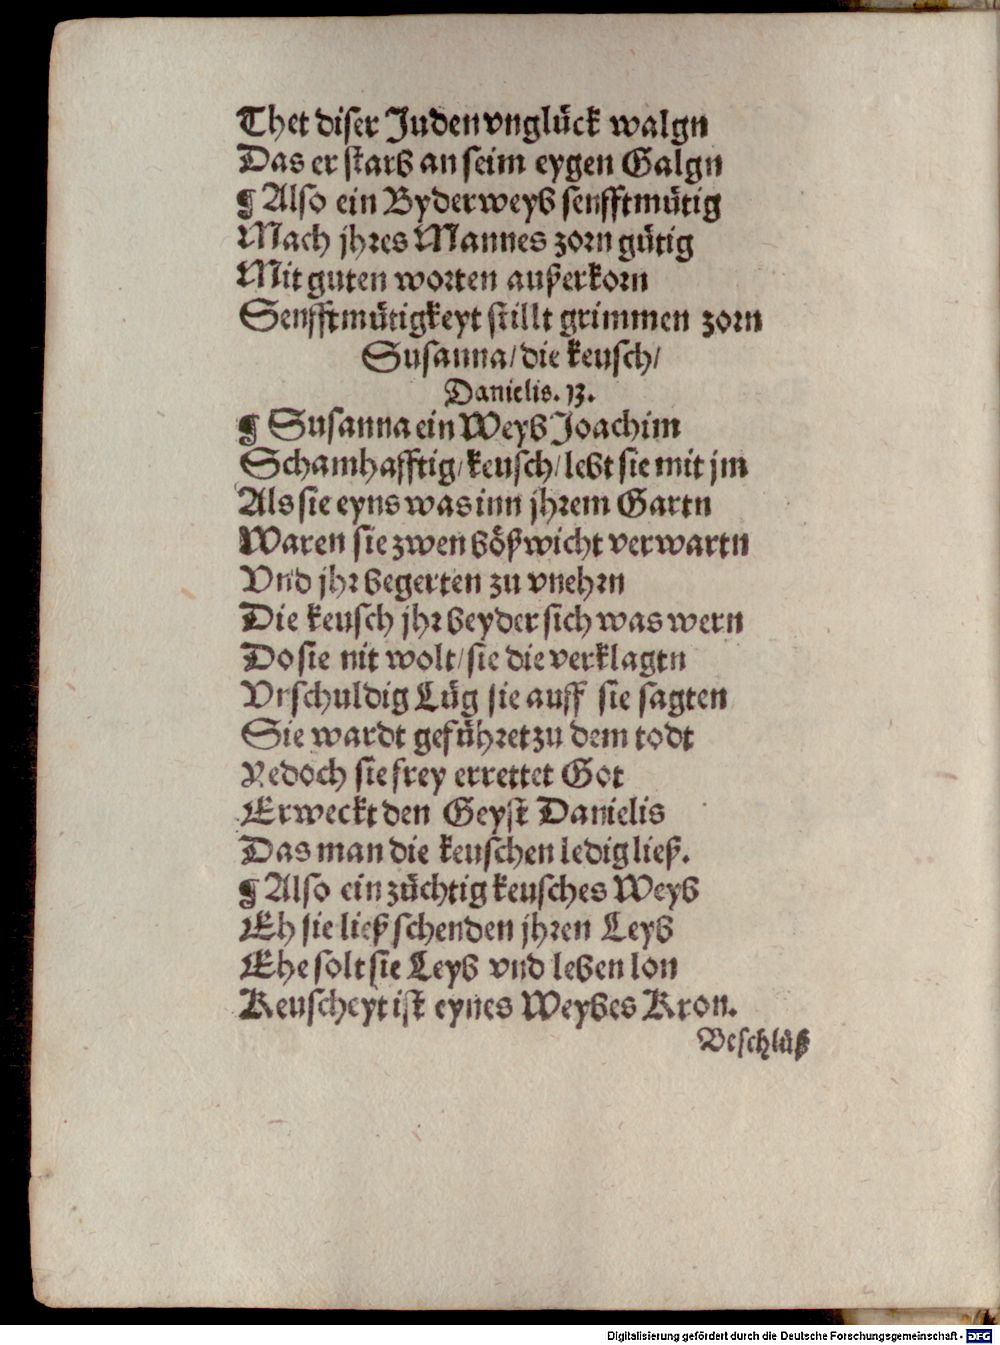 Thet diser Juden vnglück walgn
Das er starb an seim eygen Galgn
¶ Also ein Byderweyb senfftmütig
Mach jhres Mannes zorn gütig
Mit guten worten außerkorn
Senfftmütigkeyt stillt grimmen zorn
Susanna/ die keusch/
Danielis. 13.
¶ Susanna ein Weyb Joachim
Schamhafftig/ keusch/ lebt sie mit jm
Als sie eyns was inn jhrem Gartn
Waren sie zwen bößwicht verwartn
Vnd jhr begerten zu vnehrn
Die keusch jhr beyder sich was wern
Do sie nit wolt/ sie die verklagtn
Vrschuldig Lüg sie auff sie sagten
Sie wardt geführet zu dem todt
Yedoch sie frey errettet Got
Erweckt den Geyst Danielis
Das man die keuschen ledig ließ.
¶ Also ein züchtig keusches Weyb
Eh sie ließ schenden jhren Leyb
Ehe solt sie Leyb vnd leben lon
Keuscheyt ist eynes Weybes Kron.
Beschlüß
Digitalisierung gefördert durch die Deutsche Forschungsgemeinschaft - DFG